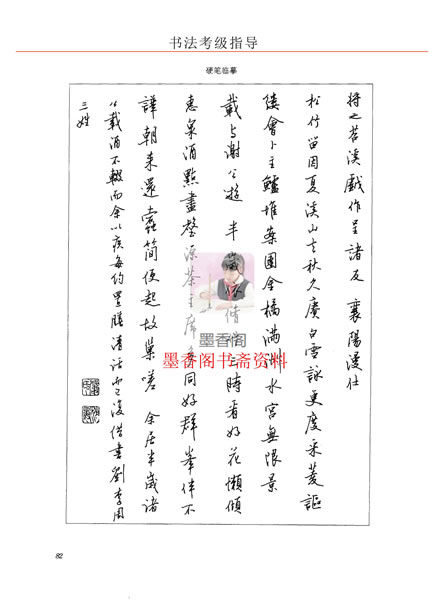 书法考级指导
硬笔临摹
將之苕溪戲作呈諸友 襄陽漫仕
松竹留因夏溪山去秋久賡白雪詠更度采菱謳
縷會卜玉鱸堆案團金橘滿洲水宮無限景
載與謝公遊 半歲依修竹三時看好花懶傾
惠泉酒點盡壑源茶主席多同好群峯伴不
譁朝來還蠹簡便起故巢嗟 余居半歲諸
公載酒不輟而余以疾每約置膳清話而已復借書劉李周
三姓
墨香阁
墨香阁书斋资料
82